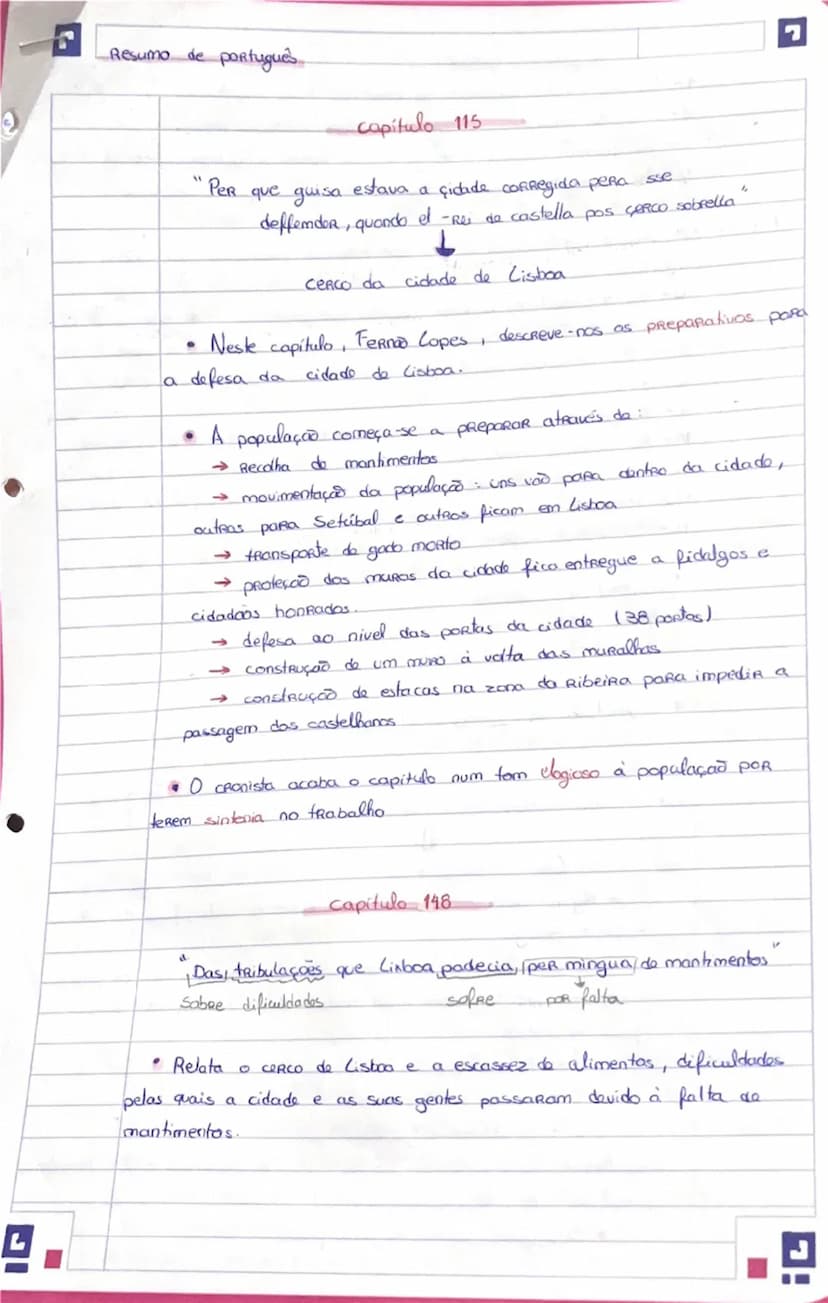 Resumo de português
Capítulo 115
"Per que guisa estava a çidade corregida pera sse
deffemder, quando el-Rei de castella pos çerco sobrella"
↓
cerco da cidade de Lisboa
• Neste capítulo, Fernão Lopes, descreve-nos os preparativos para
a defesa da cidade de Lisboa.
• A população começa-se a preparar através de:
→ Recolha de mantimentos
→ movimentação da população: uns vão para dentro da cidade,
outros para Setúbal e outros ficam em Lisboa
→ transporte de gado morto
→ proteção dos muros da cidade fica entregue a fidalgos e
cidadãos honrados.
→ defesa ao nível das portas da cidade (38 portas)
→ construção de um muro à volta das muralhas
→ construção de estacas na zona da Ribeira para impedir a
passagem dos castelhanos
• O cronista acaba o capítulo num tom elogioso à população por
terem sintonia no trabalho
Capítulo 148
"Das tribulações que Lixboa padecia per mingua de mantimentos"
Sobre dificuldades sofre por falta
• Relata o cerco de Lisboa e a escassez de alimentos, dificuldades
pelas quais a cidade e as suas gentes passaram devido à falta de
mantimentos.